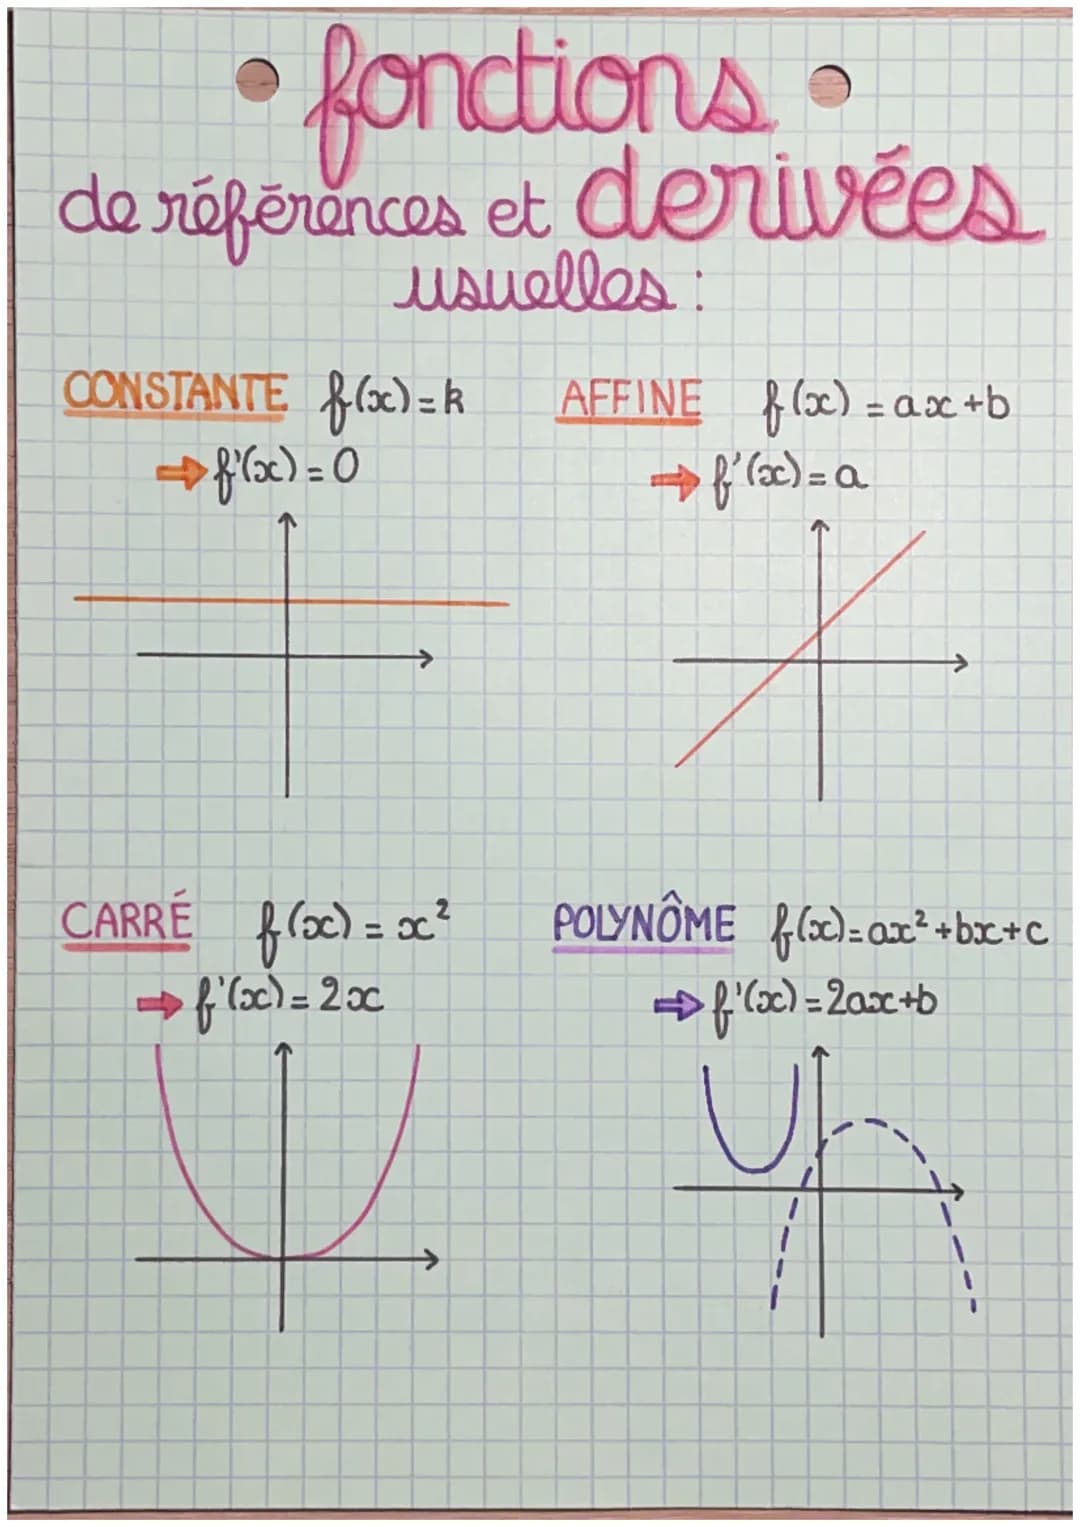 fonctions
de références et derivées
usuelles :
CONSTANTE f(x)=k
→ f'(x)=0
AFFINE f(x)=ax+b
→ f'(x)=a
CARRÉ f(x)=x²
→ f'(x)=2x
POLYNÔME f(x)=ax²+bx+c
→ f'(x)=2ax+b